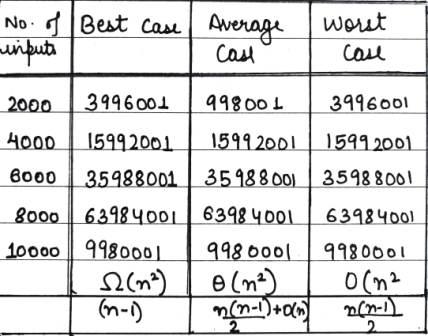 No. of inputs Best Case Average Case Worst Case
2000 3996001 998001 3996001
4000 15992001 15992001 15992001
6000 35988001 35988001 35988001
8000 63984001 63984001 63984001
10000 9980001 9980001 9980001
Ω(n²) θ(n²) O(n²
(n-1) n(n-1)/2+O(n) n(n-1)/2